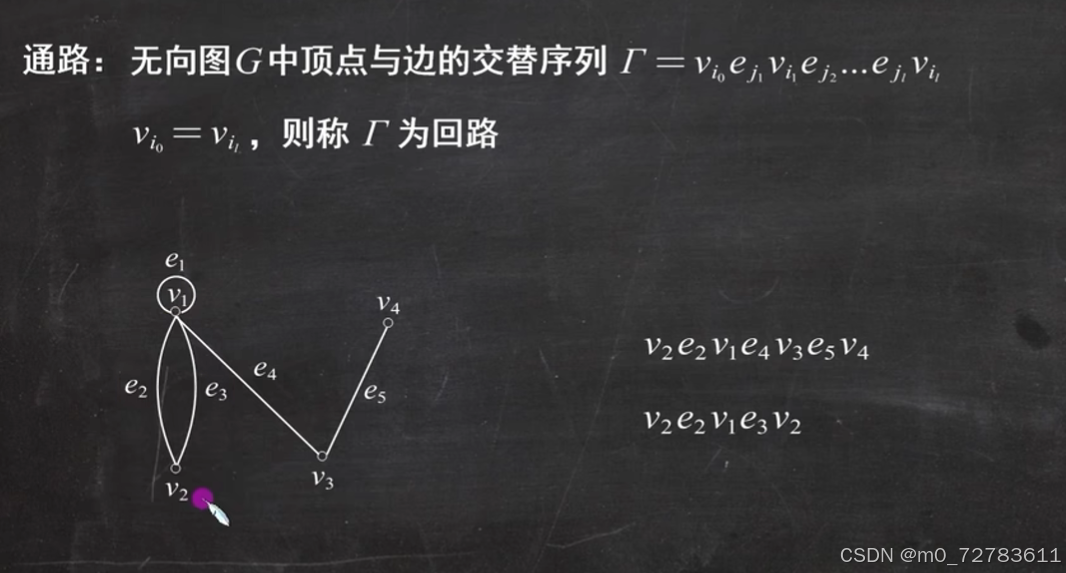 通路： 无向图G中顶点与边的交替序列 Γ = v_{i_0} e_{j_1} v_{i_1} e_{j_2} … e_{j_l} v_{i_l}
v_{i_0} = v_{i_l}， 则称 Γ 为回路
e₁
v₁
v₄
e₄
e₂
e₃
e₅
v₂
v₃
v₂e₂v₁e₄v₃e₅v₄
v₂e₂v₁e₃v₂
CSDN @m0_72783611